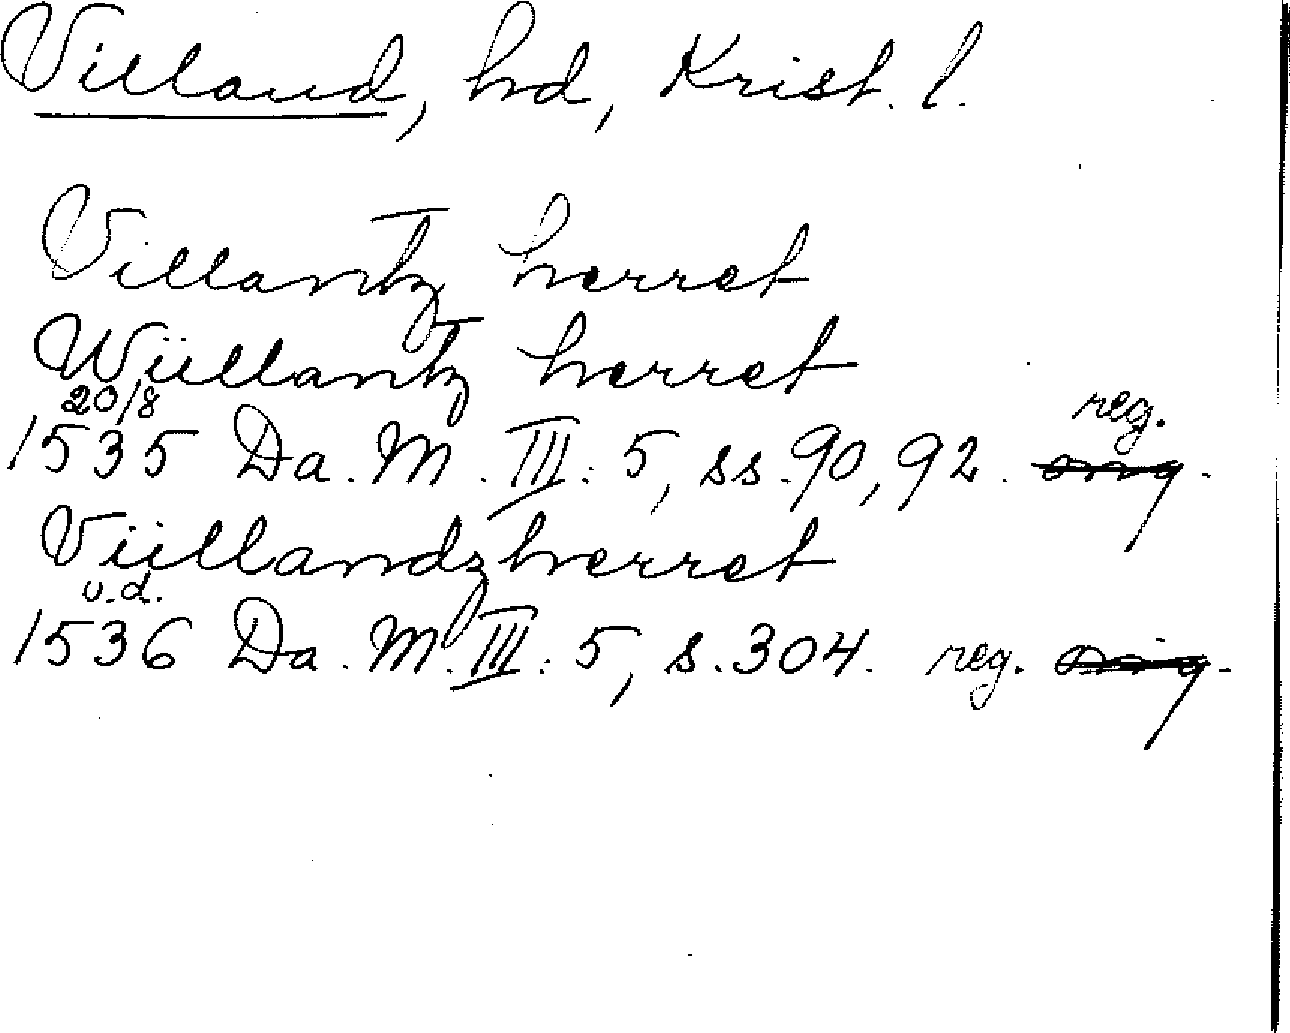 Villand, hd, Krist. l.
Villantz herret
Wüllantz herret
20/8 reg.
1535 Da. M. III: 5, ss. 90, 92. orig.
Vüllandzherret
u.d.
1536 Da. M. III: 5, s. 304. reg. orig.